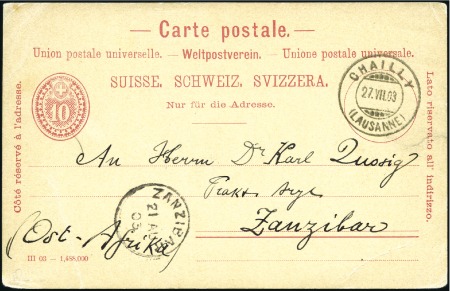 Carte postale.
Union postale universelle. — Weltpostverein. — Unione postale universale.
SUISSE. SCHWEIZ. SVIZZERA.
Nur für die Adresse.
Côté réservé à l'adresse.
Lato riservato all' indirizzo.
10
CHAILLY
27.VII.03
(LAUSANNE)
An Herrn Dr Karl
Zanzibar
ZANZIBAR
21 AU
03
(Ost-Afrika)
III 03 — 1,488,000